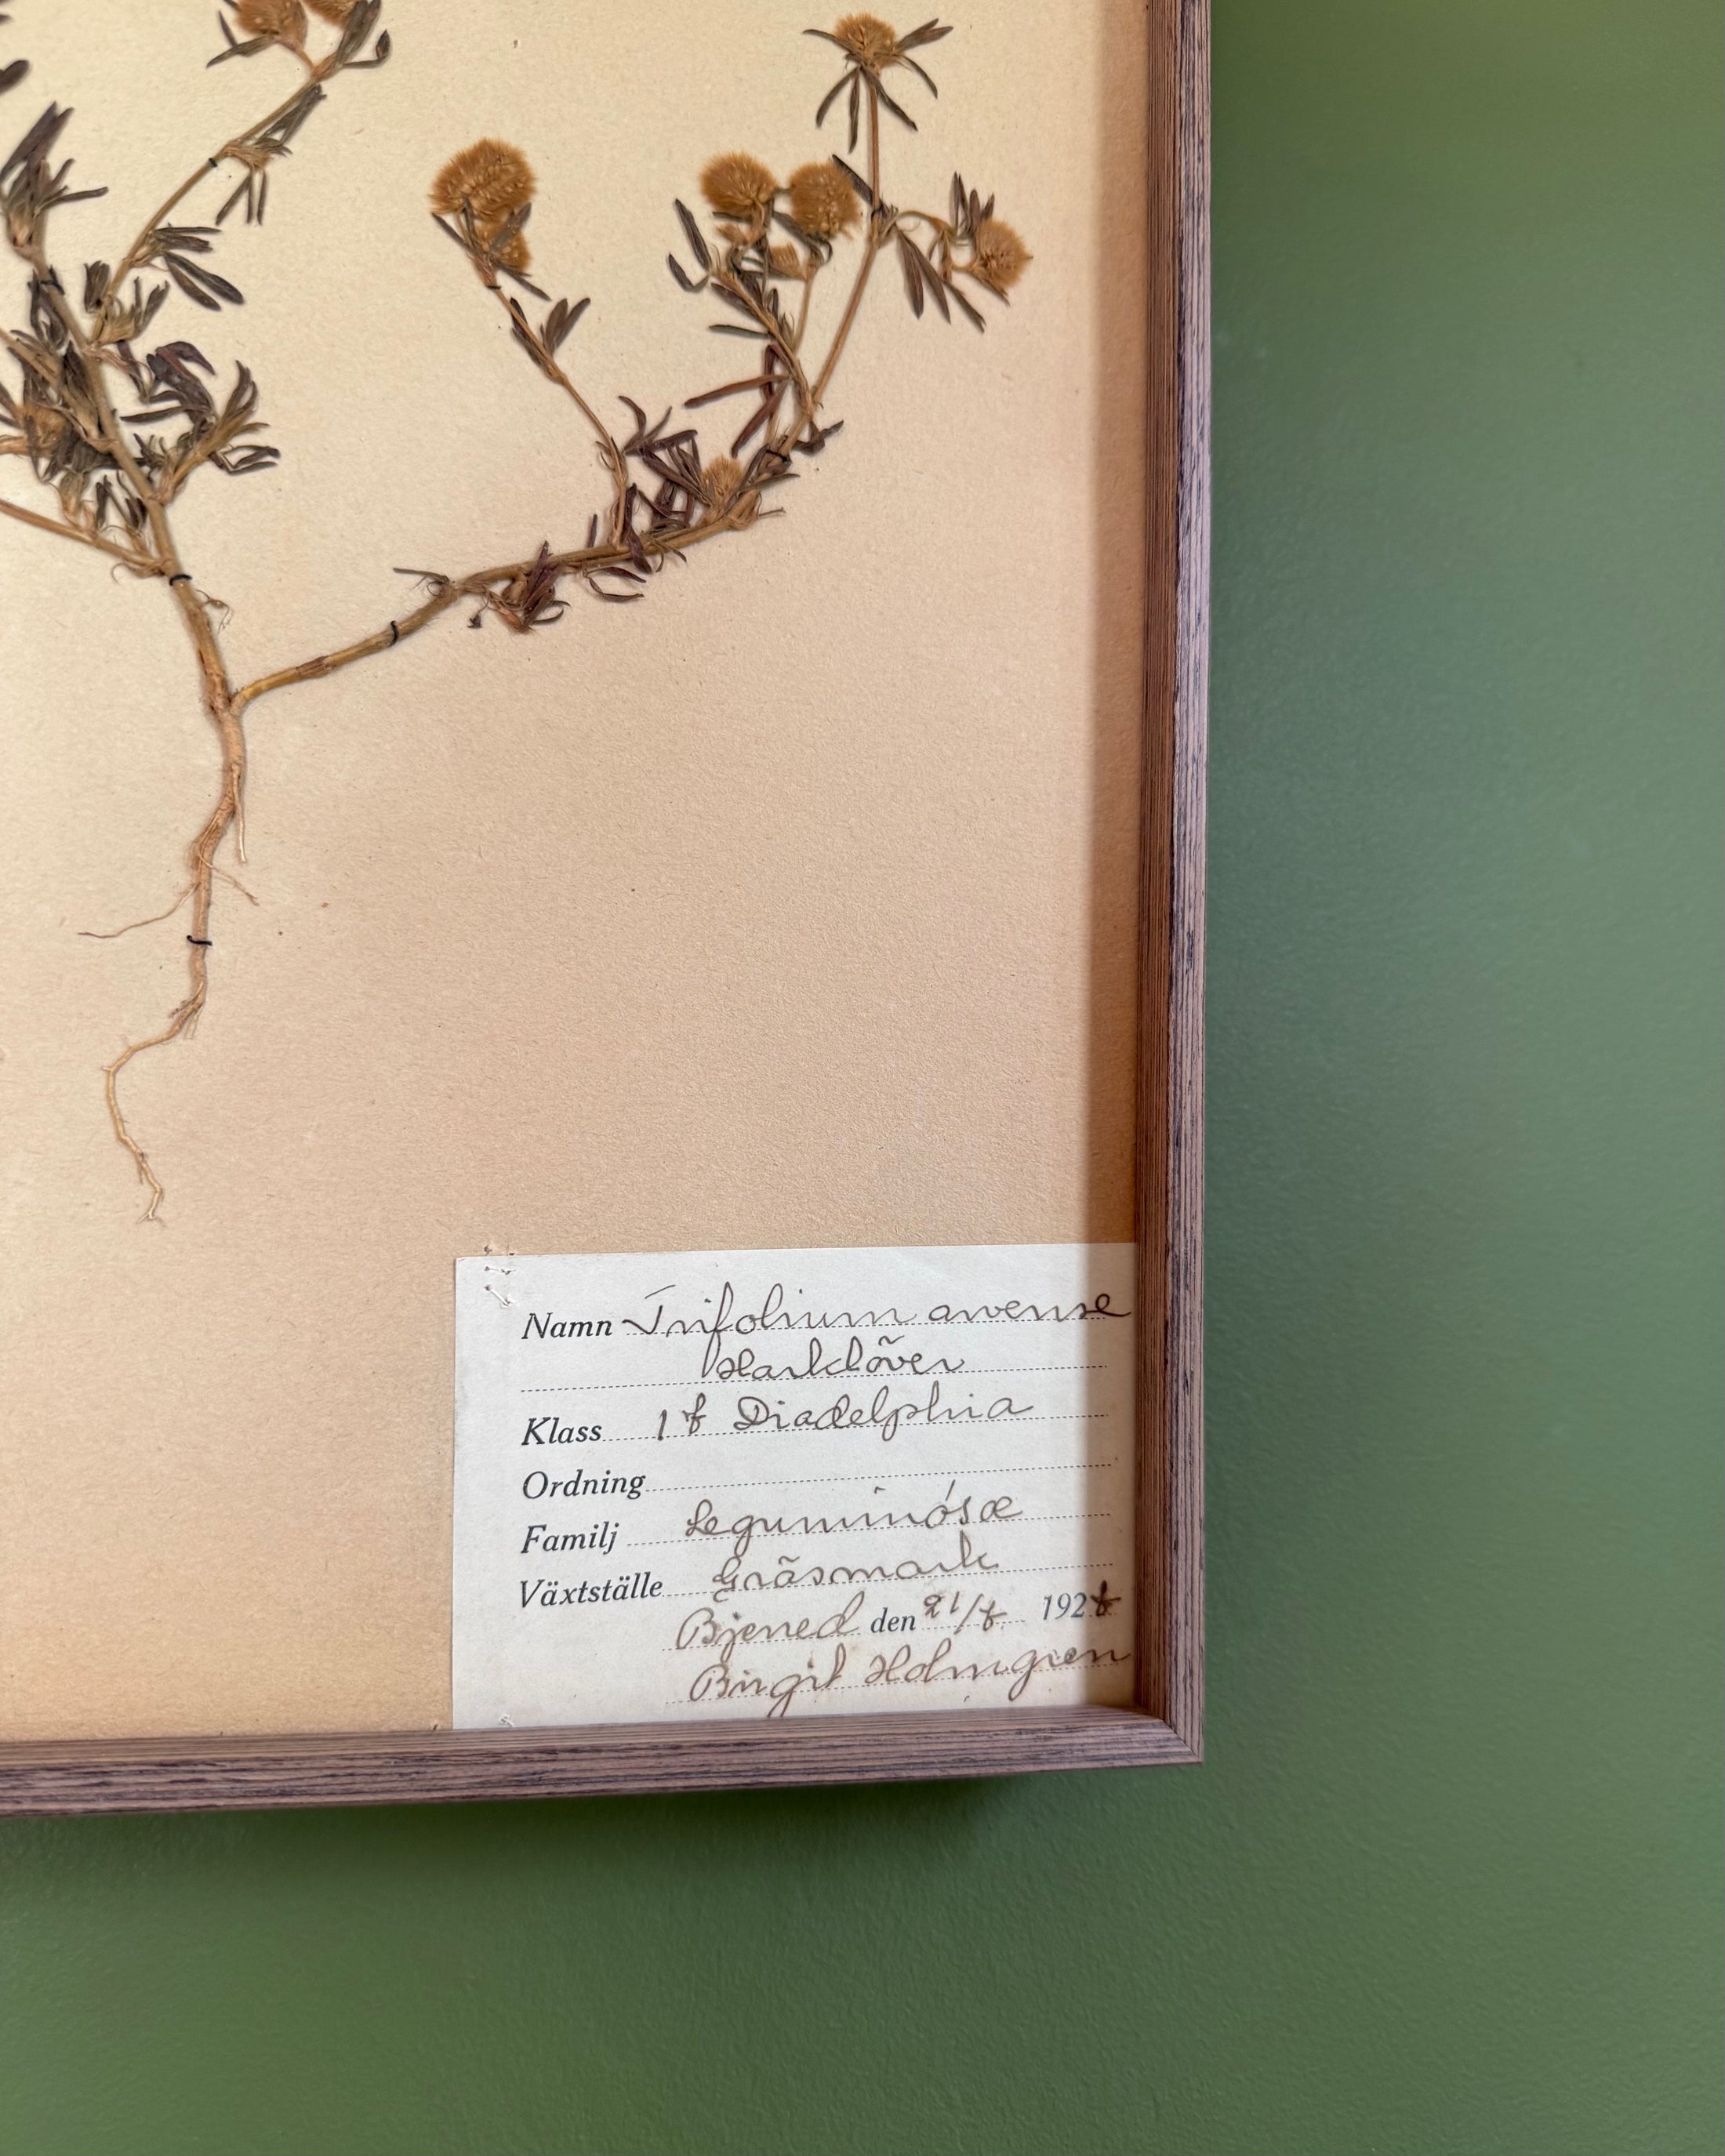 Namn Trifolium arvense
Harklöver
Klass 17 Diadelphia
Ordning
Familj Leguminósæ
Växtställe Gräsmark
Bjered den 21/7 1927
Birgit Holmgren